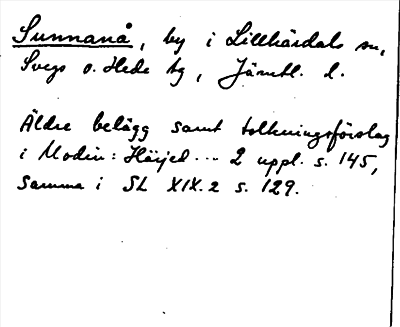 Sunnanå, by i Lillhärdals sn,
Svegs o. Hede tg, Jämtl. l.
Äldre belägg samt tolkningsförslag
i Modin: Härjed... 2 uppl. s. 145,
samma i SL XIX.2 s. 129.